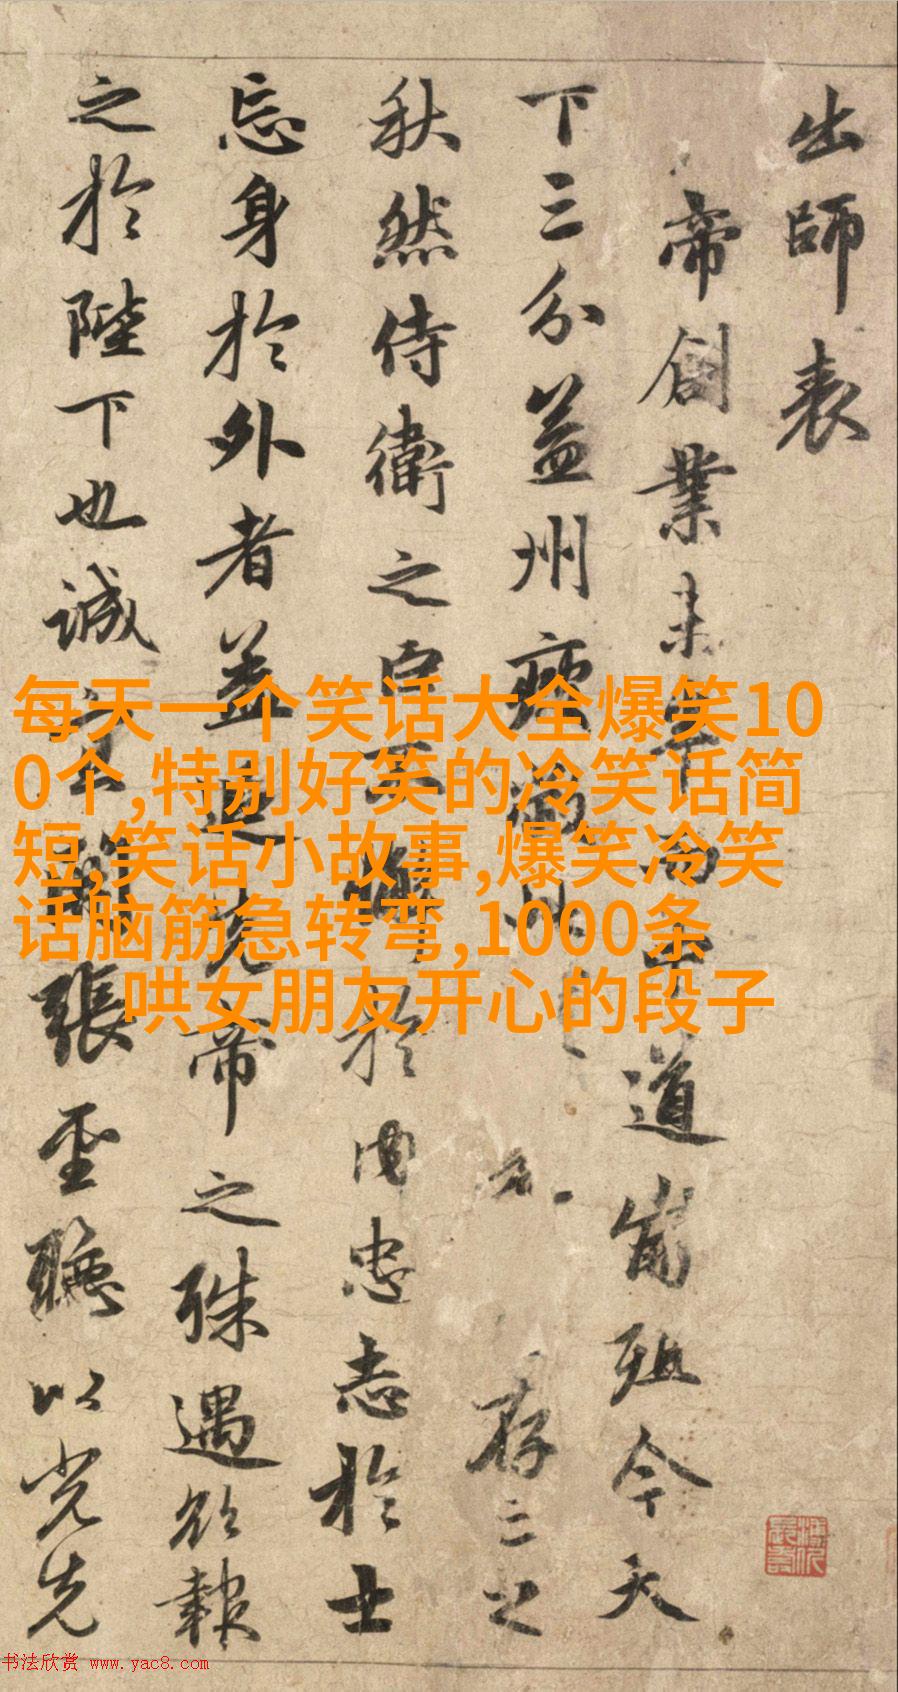 出師表
帝創業未半而中道崩殂今天
下三分益州疲存亡之
秋然侍衛之臣不懈於内忠志於士
忘身於外者蓋追先帝之殊遇欲報
之於陛下也誠宜開張聖聽以光先
每天一个笑话大全爆笑10
0个,特别好笑的冷笑话简
短,笑话小故事,爆笑冷笑
话脑筋急转弯,1000条
哄女朋友开心的段子
书法欣赏 www.yac8.com